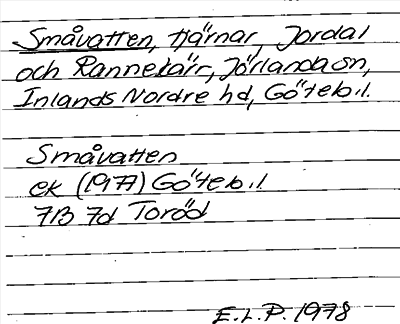 Småvatten, tjärnar, Jordal
och Rannekärr, Jörlanda sn,
Inlands Nordre hd, Göteb.l.
Småvatten
ek (1977) Göteb.l.
7B 7d Toröd
E.L.P. 1978